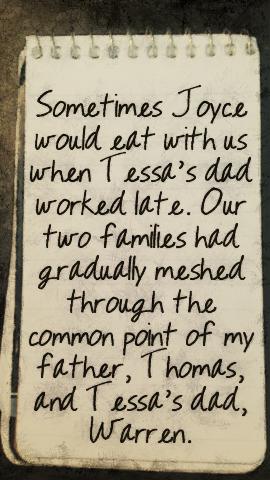 Sometimes Joyce
would eat with us
when Tessa's dad
worked late. Our
two families had
gradually meshed
through the
common point of my
father, Thomas,
and Tessa's dad,
Warren.